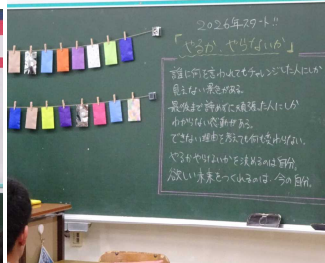 2026年スタート!!
「やるか、やらないか」
誰に何を言われてもチャレンジした人にしか
見えない景色がある。
最後まで諦めずに頑張った人にしか
わからない感動がある。
できない理由を考えても何も変わらない。
やるかやらないかを決めるのは自分。
欲しい未来をつくれるのは、今の自分。